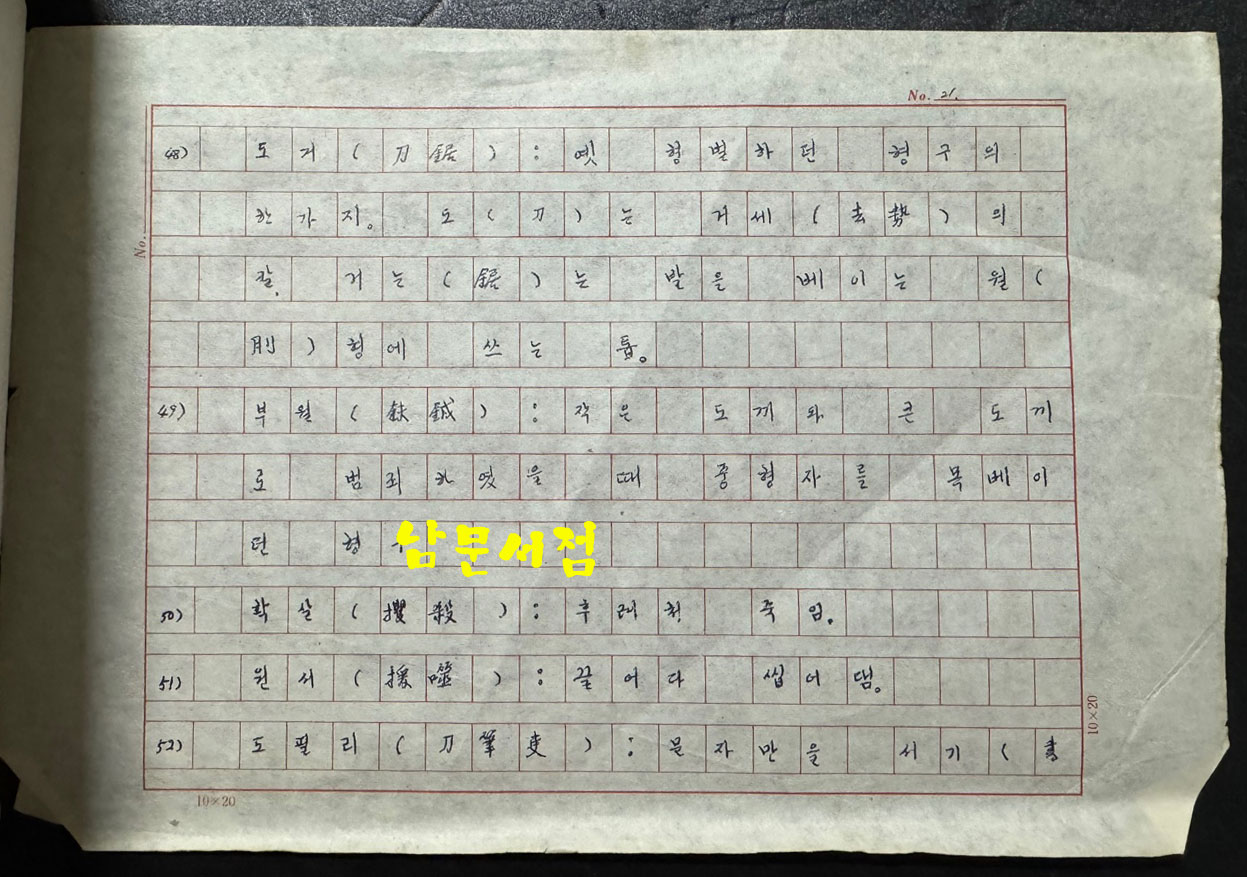 No. 21.
48) 도거(刀鋸): 옛 형벌하던 형구의
한가지。 도(刀)는 거세(去勢)의
칼. 거는(鋸)는 발을 베이는 월(
刖)형에 쓰는 톱。
49) 부월(鈇鉞): 작은 도끼와 큰 도끼
로 범죄하였을 때 중형자를 목베이
던 형
남문서점
50) 확살(攫殺): 후려쳐 죽임.
51) 원서(援噬): 끌어다 씹어댐。
52) 도필리(刀筆吏): 문자만을 서기(書
No.
10×20
10×20